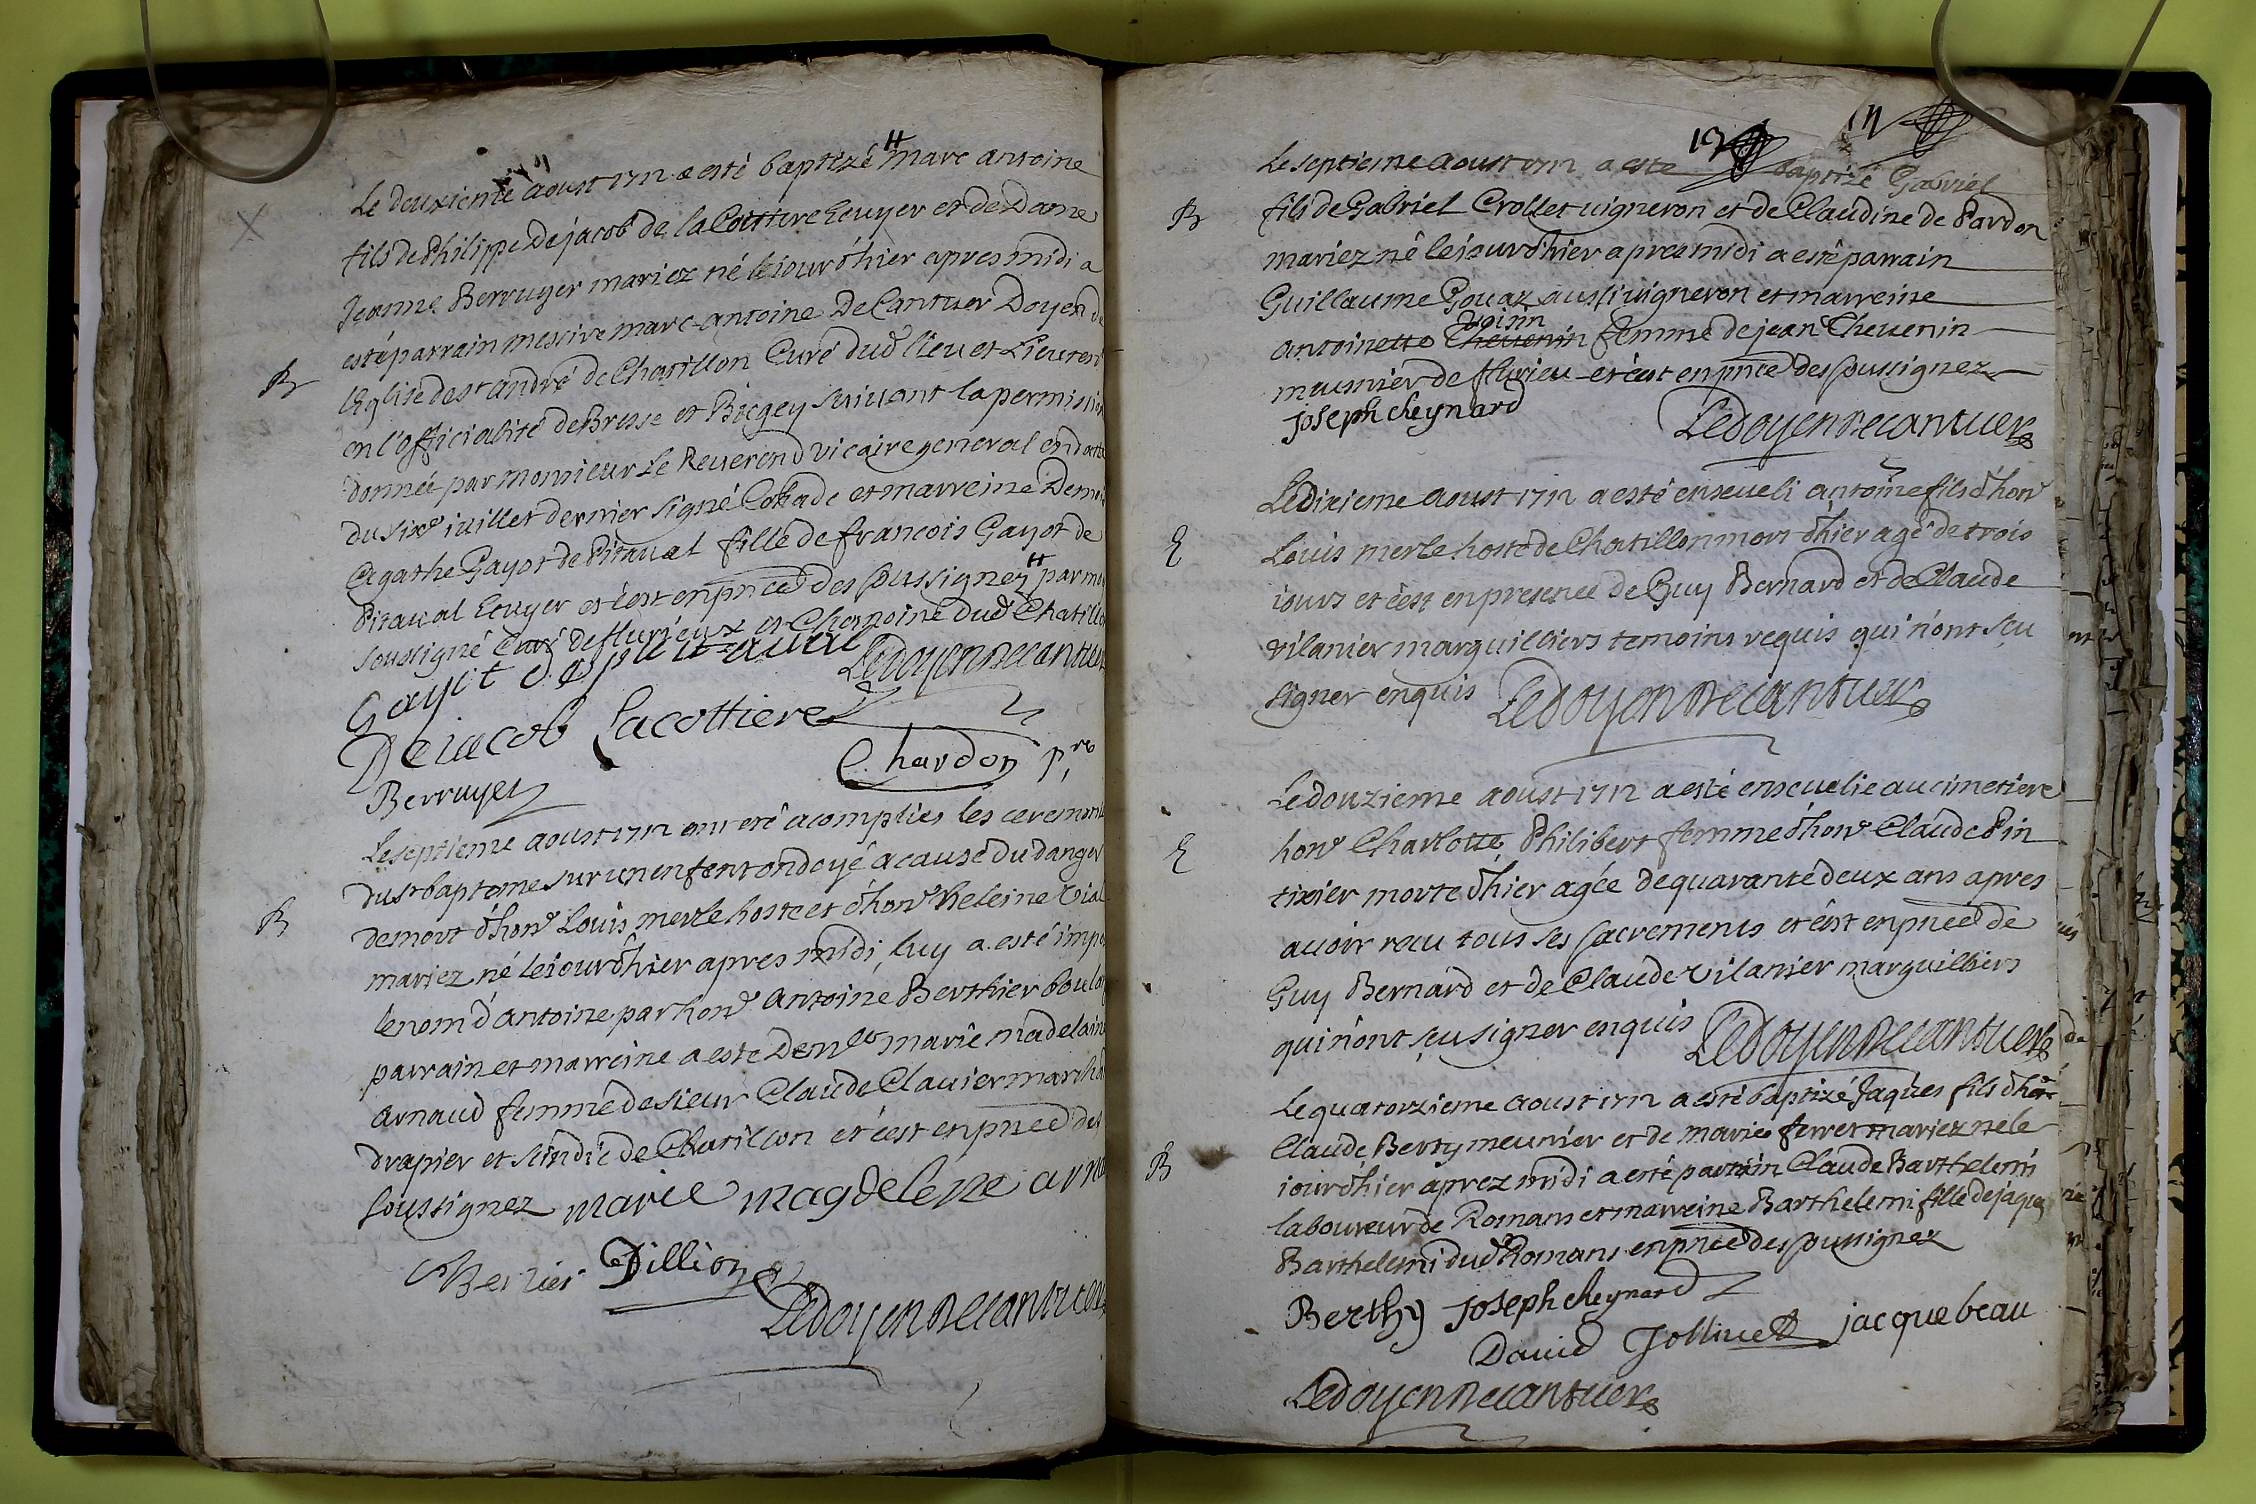 Le deuxieme aoust 1712 a esté baptizé # marc antoine
fils de Philippe Dejacob de la Cottiere Ecuyer et de Dame
Jeanne Berruyer mariez né le jour d'hier apres midi a
esté parrain messire marc-antoine De Cantuer Doyen de
B
l'Eglise de st andré de Chatillon Curé dud lieu et Lieuten
en l'officialité de Bresse et Bugey suivant la permission
donnée par monsieur Le Reverend vicaire general en datte
du sixe iuillet dernier signé Cohade et marreine Demoi
Agathe Gayot de Pitaval fille de francois Gayot de
Pitaval Ecuyer et c'est en pnce des soussignez # par moi
soussigné Curé de flurieux et Chanoine dud Chatillon
Gayot de pitaval Ledoyendecantuer
Dejacob Lacottiere
Chardon pre
Berruyer
Le septieme aoust 1712 ont eté acomplies les ceremonies
du st bapteme sur un enfent ondoyé a cause du danger
B
de mort d'hone Louis merle hoste et d'hone heleine Vial
mariez né le iour d'hier apres midi, luy a esté impo
le nom d'antoine par hone antoine Berthier boulan
parrain et marreine a esté Demlle marie madelaine
arnaud femme de sieur Claude Clavier marchand
drapier et sindic de Chatillon et c'est en pnce des
soussignez marie magdelene arna
Bertier Dillion
Ledoyendecantuer
13
Le septieme aoust 1712 a esté baptizé Gabriel
B
fils de Gabriel Crollet vigneron et de Claudine de Pardon
mariez né le iour d'hier apres midi a esté parrain
Guillaume Gouaz aussi vigneron et marreine
voisin
antoinette Chevenin femme de jean Chevenin
meusnier de flurieu et c'est en pnce des soussignez
Joseph cheynard Ledoyendecantuer
Le dixieme aoust 1712 a esté enseveli antoine fils d'hone
E
Louis merle hoste de Chatillon mort d'hier agé de trois
iours et c'est en presence de Guy Bernard et de Claude
vilanier marguilliers temoins requis qui n'ont sçu
signer enquis Ledoyendecantuer
Le douzieme aoust 1712 a esté ensevelie au cimetiere
E
hone Charlotte Philibert femme d'hone Claude Pin
tixier morte d'hier agée de quarante deux ans apres
avoir recu tous ses sacrements et c'est en pnce de
Guy Bernard et de Claude vilanier marguilliers
qui n'ont sçu signer enquis Ledoyendecantuer
Le quatorzieme aoust 1712 a esté baptizé Jaques fils d'hone
Claude Berty meunier et de marie ferret mariez né le
B
iour d'hier aprez midi a esté parrain Claude Barthelemi
laboureur de Romans et marreine Barthelemi fille de jaques
Barthelemi dud Romans en pnce des soussignez
Berthy Joseph cheynard
David Jollivet jacque beau
Ledoyendecantuer